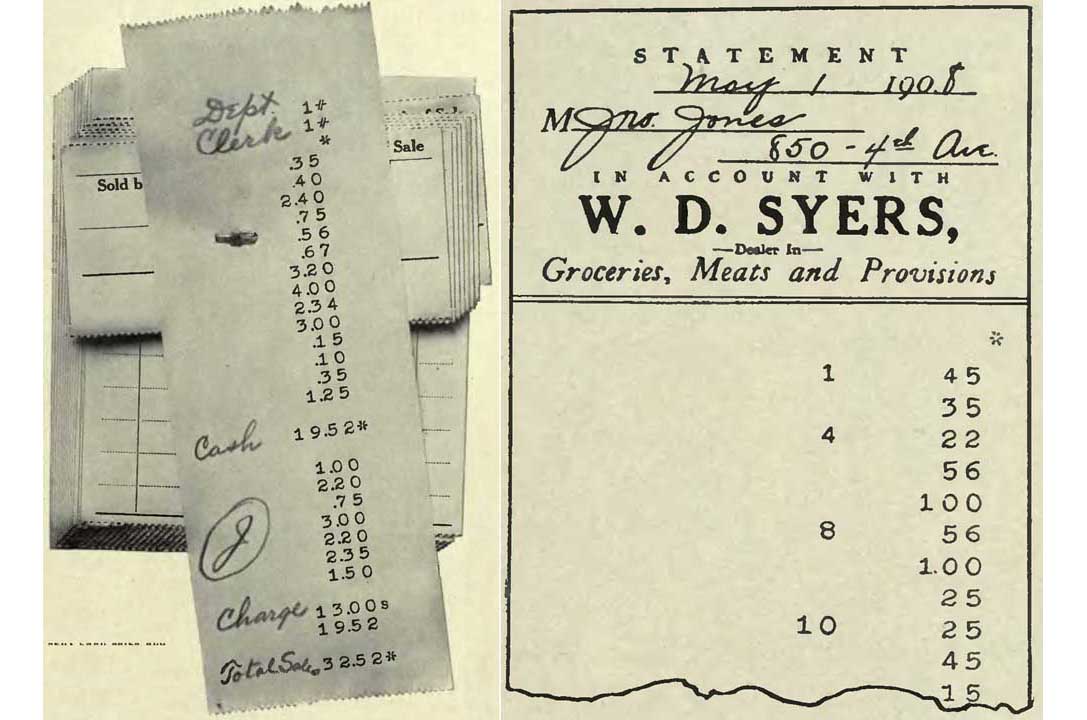 Dept. 1#
Clerk 1#
*
.35
.40
2.40
.75
.56
.67
3.20
4.00
2.34
3.00
.15
.10
.35
1.25
Cash 19.52*
1.00
2.20
.75
3.00
2.20
2.35
1.50
J
Charge 13.00s
19.52
Total Sale 32.52*
Sold b
Sale
STATEMENT
May 1 1908
M Jno. Jones
850 - 4th Ave.
IN ACCOUNT WITH
W. D. SYERS,
—Dealer In—
Groceries, Meats and Provisions
*
1 45
35
4 22
56
100
8 56
1.00
25
10 25
45
15